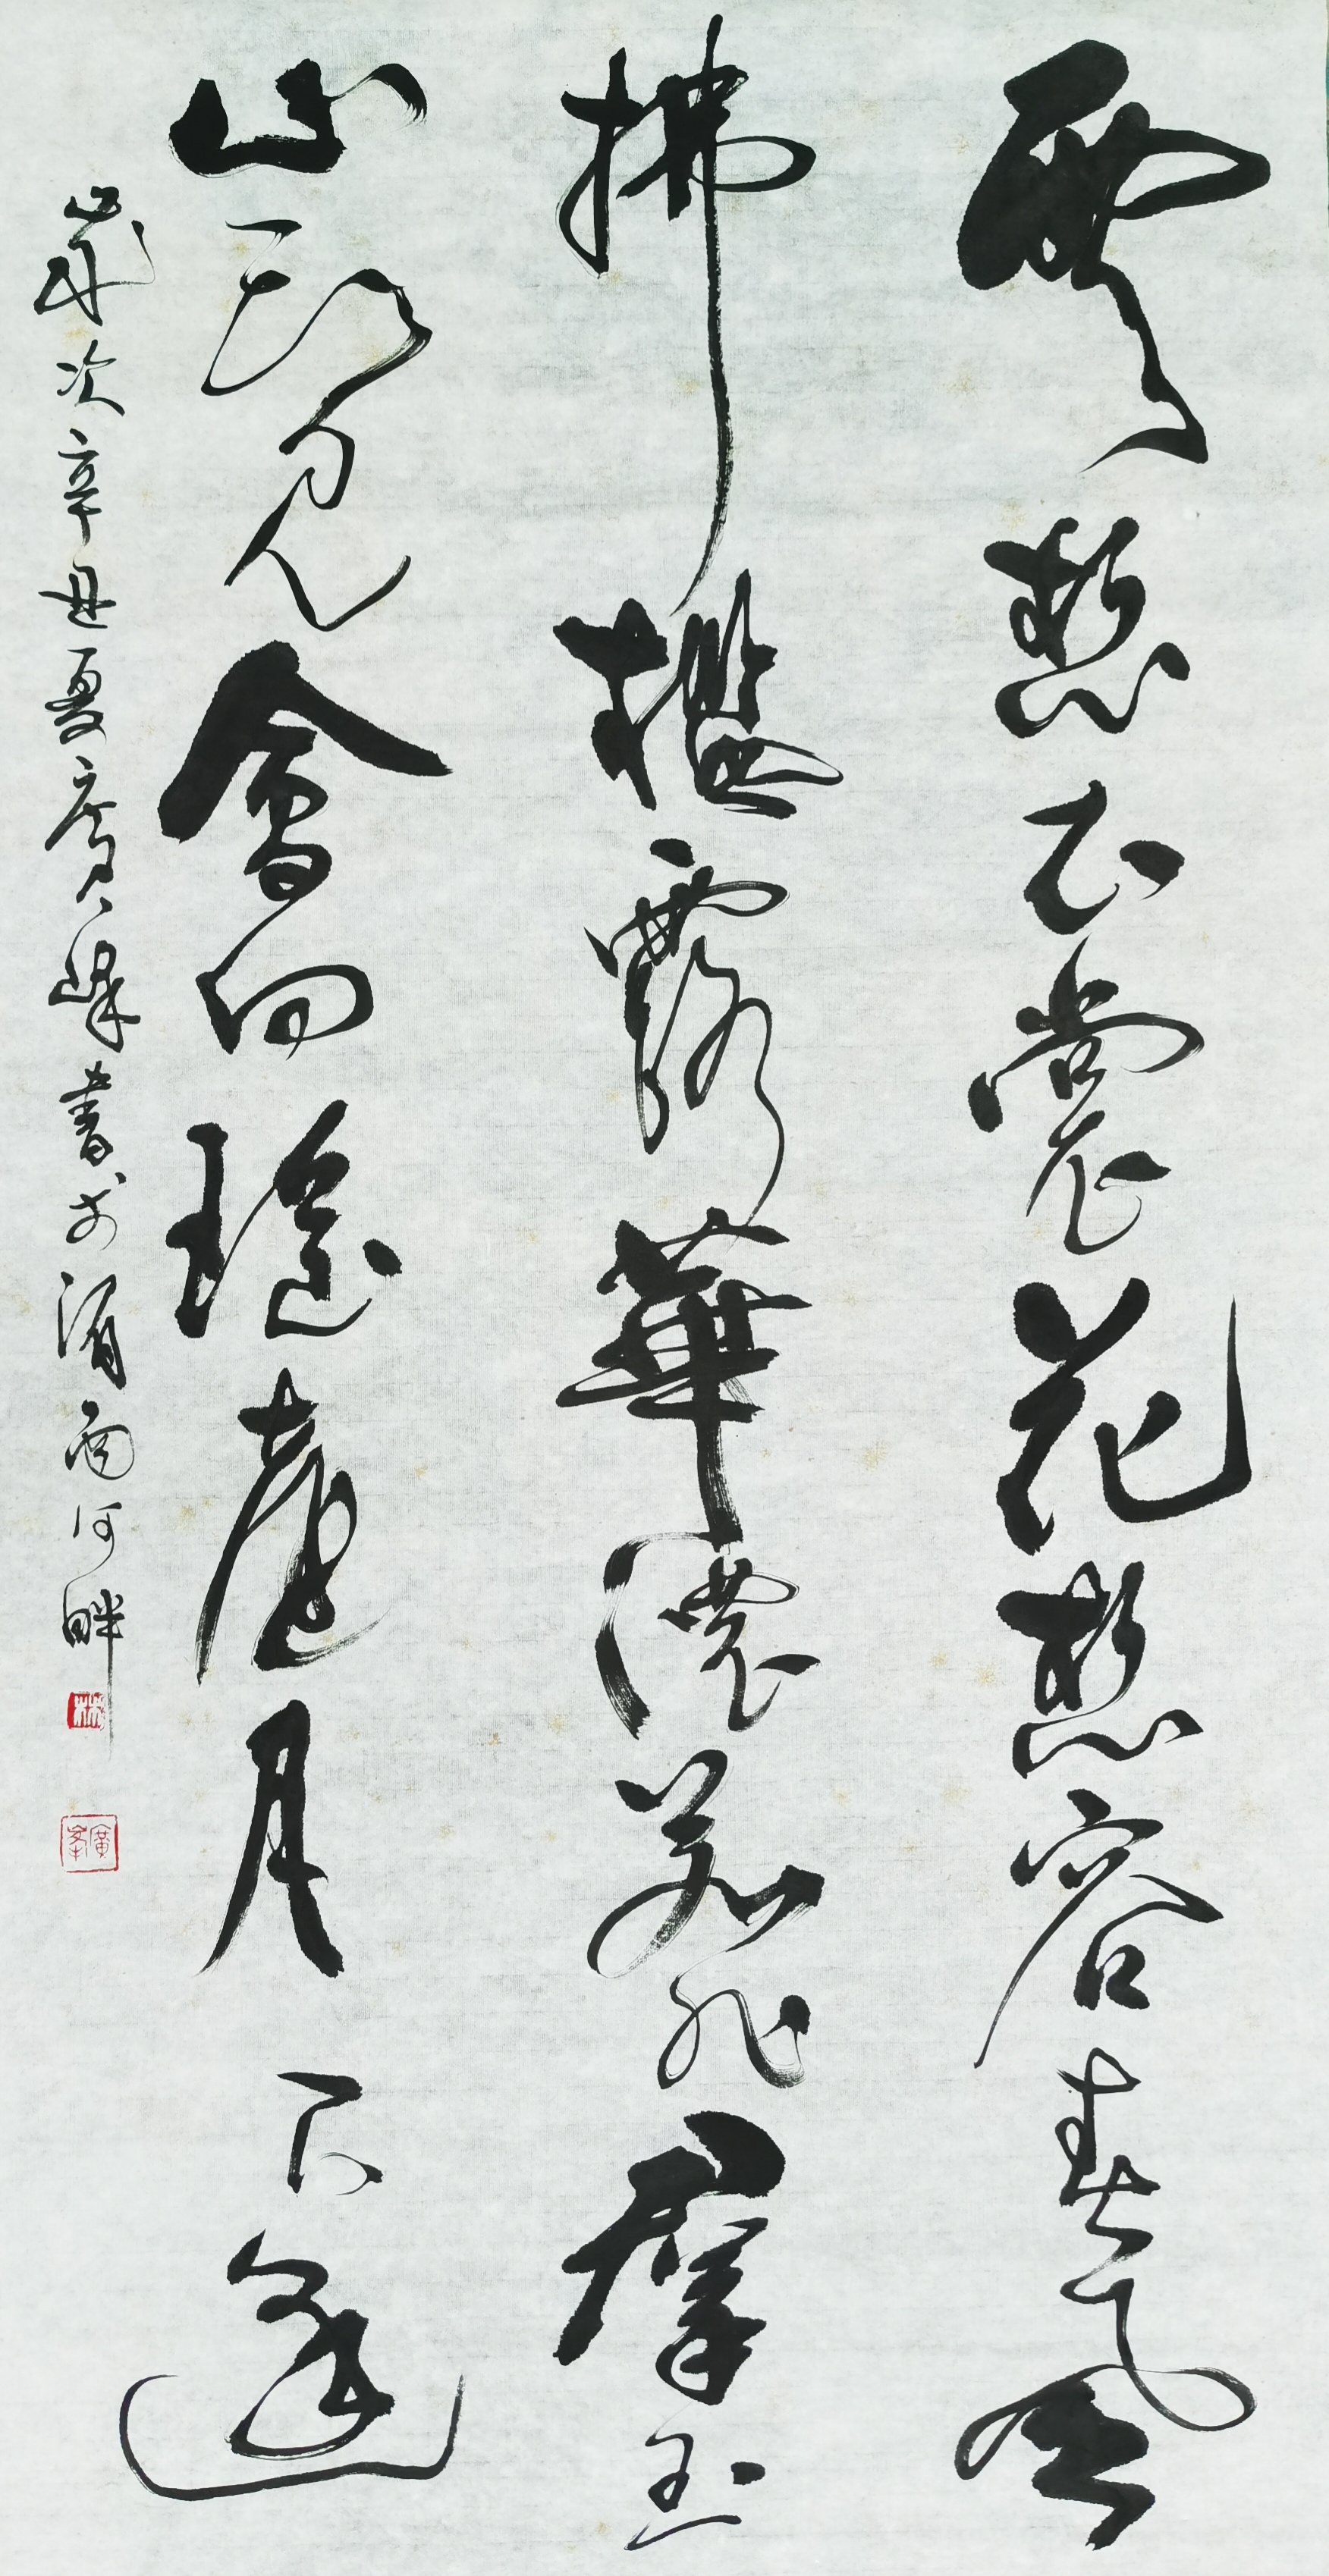 雲想衣裳花想容春風
拂檻露華濃若非群玉
山頭見會向瑤臺月下逢
歲次辛丑夏廣峰書於渭雨河畔
林
廣峯